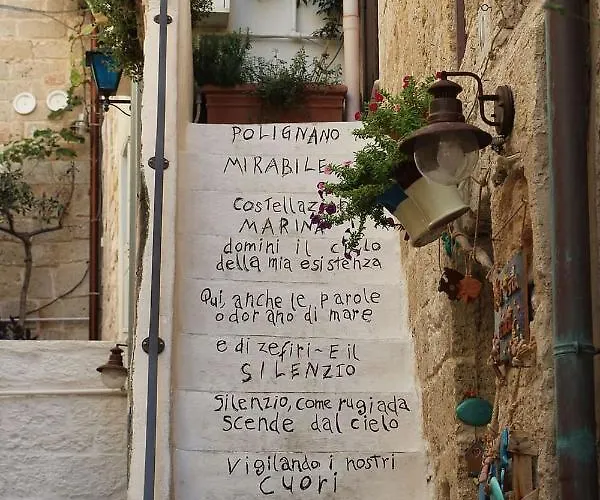 POLIGNANO
MIRABILE
Costellaz
MARINA
domini il cielo
della mia esistenza
Qui, anche le parole
odorano di mare
e di zefiri - E il
SILENZIO
Silenzio, come rugiada
scende dal cielo
vigilando i nostri
cuori